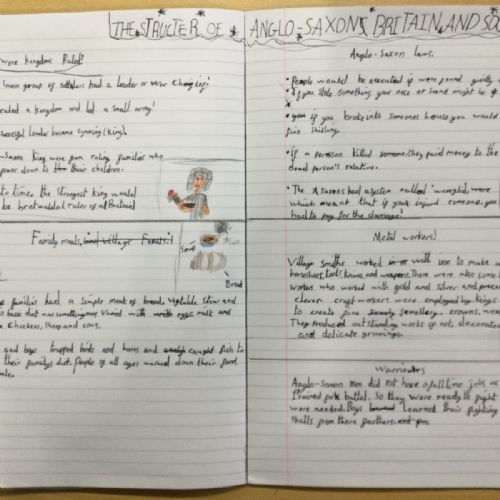 THE STRUCTER OF ANGLO-SAXONS BRITAIN AND SO
were Kingdoms Ruled?
Saxon group of settelers had a leader or War
ruled a Kingdom and led a small army!
successful leader became Cyning (King).
Saxon King were from ruling families who
power down to their children.
time, the strongest King would
be bretwalda (ruler of all Britain)
Family meals, and village Feasts!
Bread
families had a simple meal of bread, vegtable stew and
was sometimes varied with eggs, milk and
chickens, sheep and cows.
and boys trapped birds and hares and caught fish to
their familys diet. People of all ages washed down their food
ale.
Anglo-Saxon laws.
• People would be executed if were found guilty
• If you stole something your nose or hand might be
• if you broke into someones house you would
five shillings.
• If a person killed someone, they paid money to the
dead person's relative.
• The Saxons had a system called wergild, were
which meant that if you injured someone, you
had to pay for the damage!
Metal workers!
Village smiths worked with iron to make
horseshoes, tools, knives and weapons. There were also some
workers who worked with gold and silver and
clever craft workers were employed by kings
to create fine jewellery, crowns,
They produced outstanding works of art, decorate
and delicate
Warriors
Anglo-Saxon men did not have a fulltime job as
trained for battel. So they were ready to fight
were needed. Boys learned their fighting
skells from there